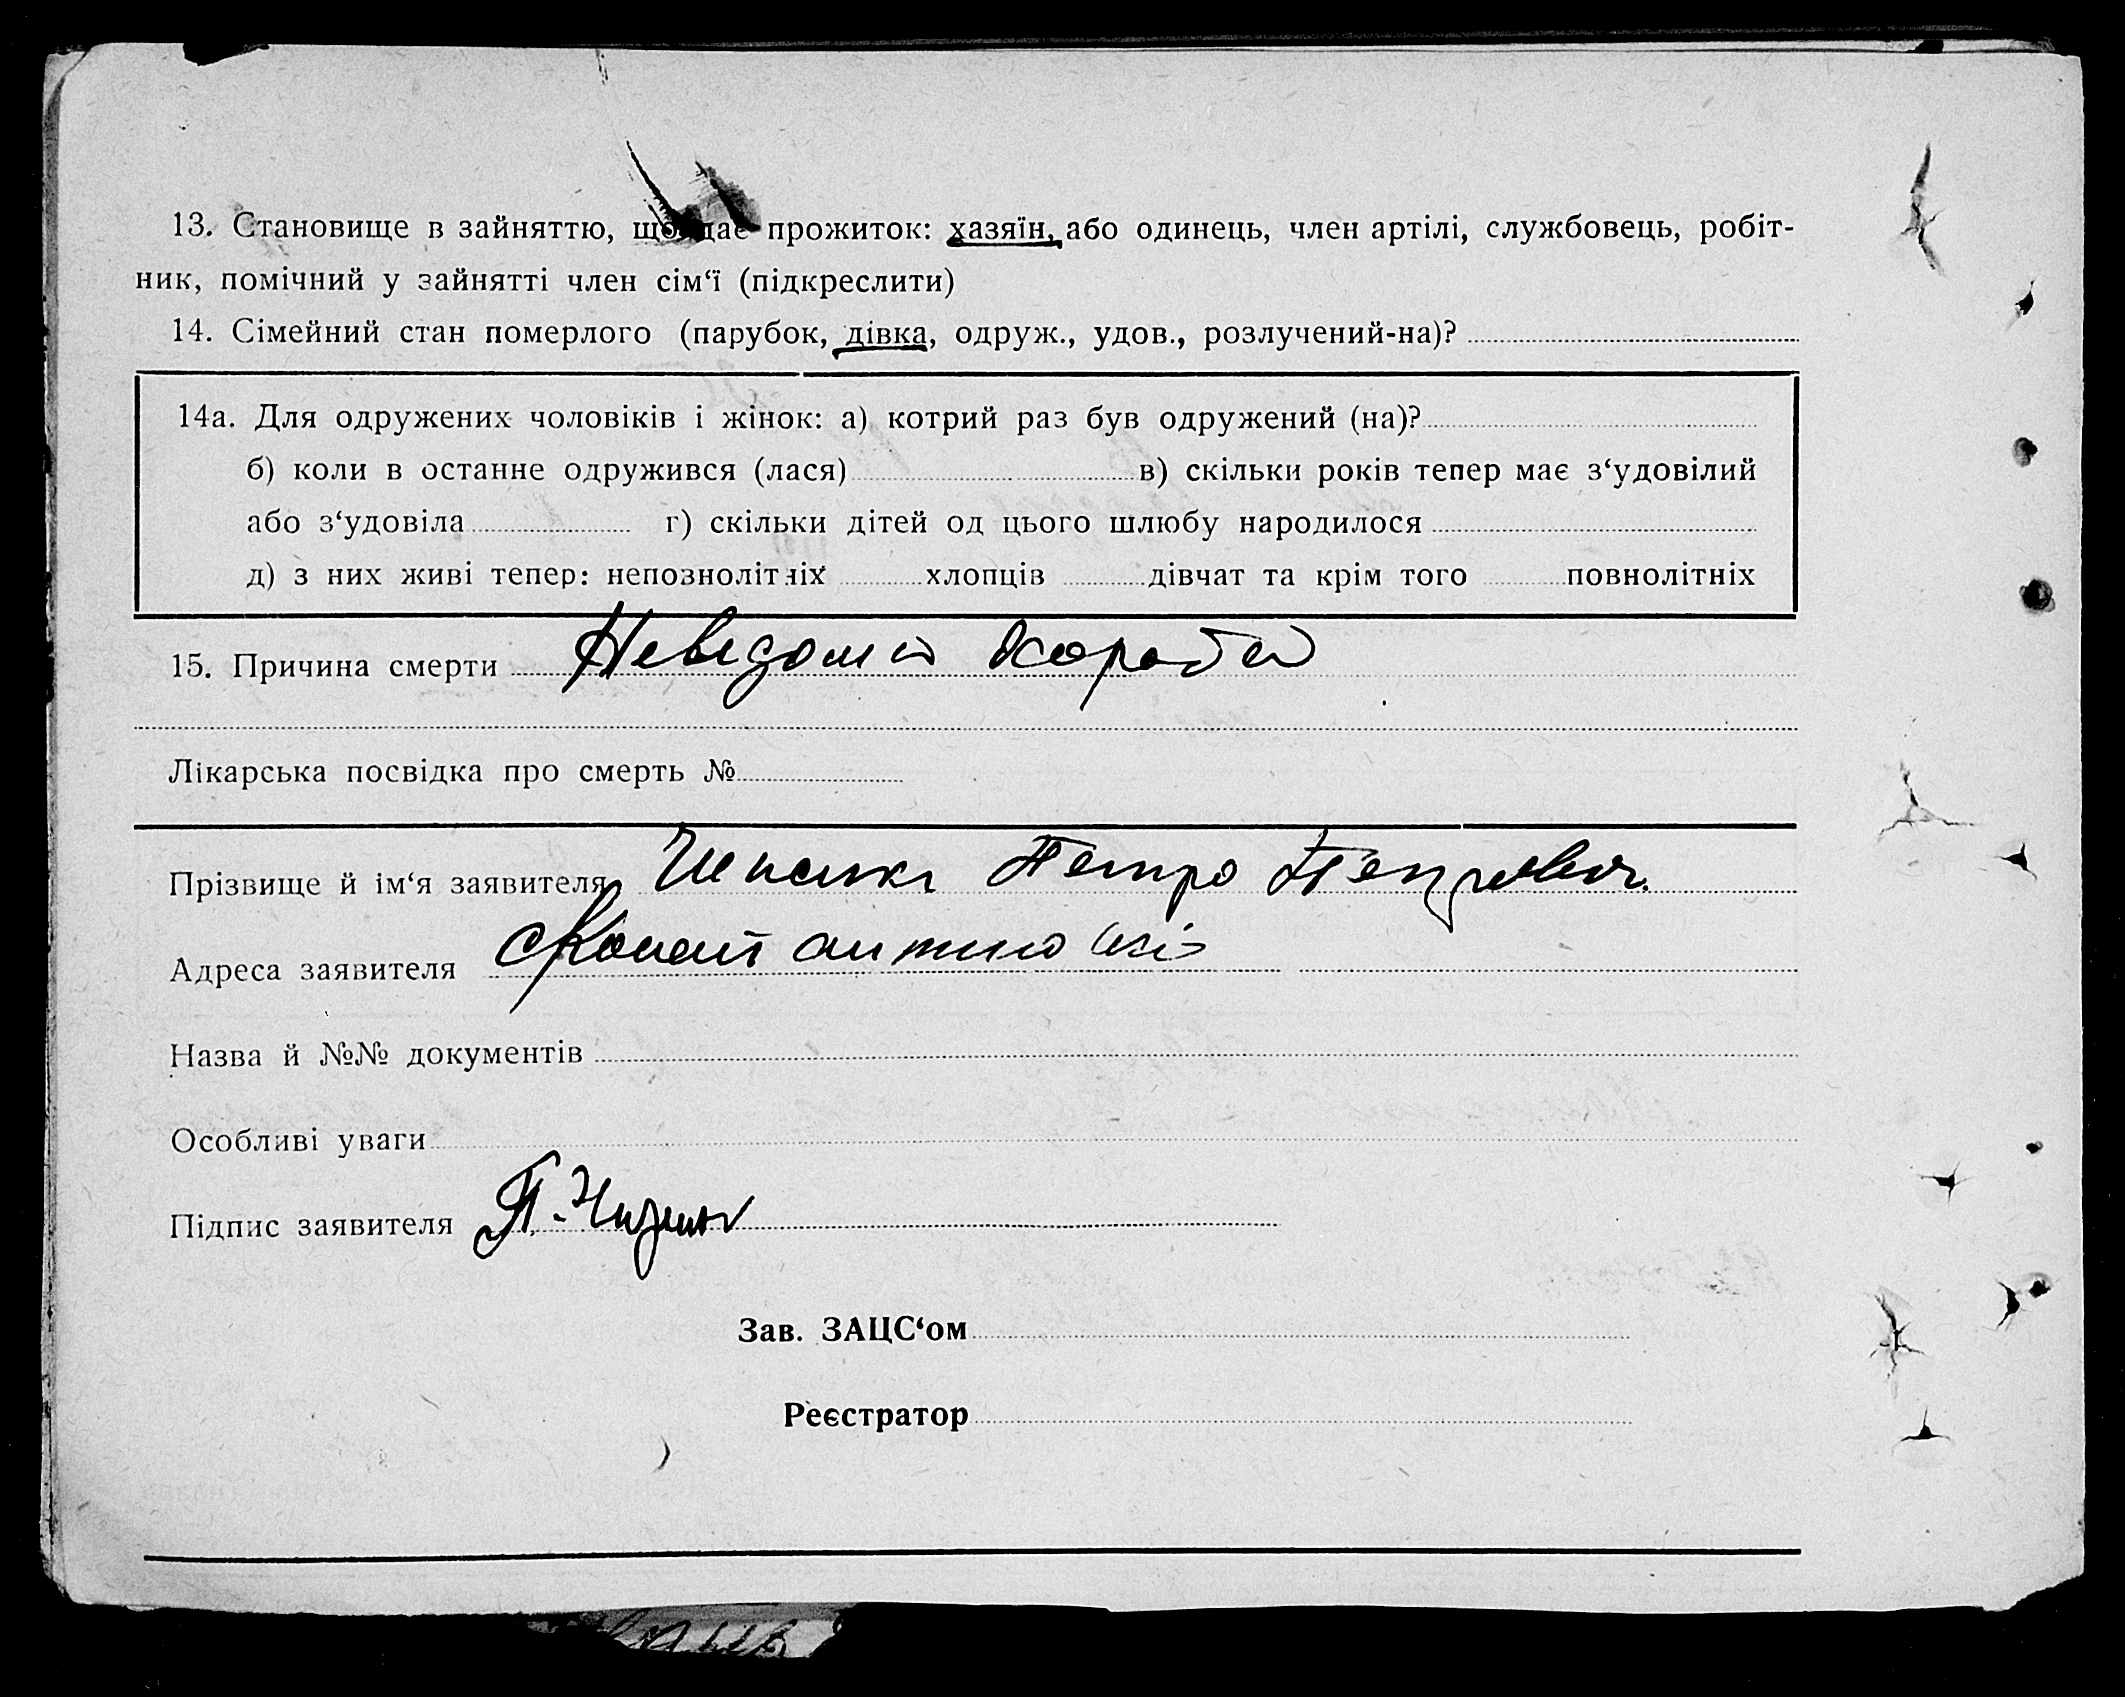 13. Становище в зайняттю, що дає прожиток: хазяїн, або одинець, член артілі, службовець, робіт-
ник, помічний у зайнятті член сім‘ї (підкреслити)
14. Сімейний стан померлого (парубок, дівка, одруж., удов., розлучений-на)?
14а. Для одружених чоловіків і жінок: а) котрий раз був одружений (на)?
б) коли в останнє одружився (лася) в) скільки років тепер має з‘удовілий
або з‘удовіла г) скільки дітей од цього шлюбу народилося
д) з них живі тепер: непознолітніх хлопців дівчат та крім того повнолітніх
15. Причина смерти Невідома хороба
Лікарська посвідка про смерть №
Прізвище й ім‘я заявителя Петро Петрович
Адреса заявителя
Назва й №№ документів
Особливі уваги
Підпис заявителя П.
Зав. ЗАЦС‘ом
Реєстратор